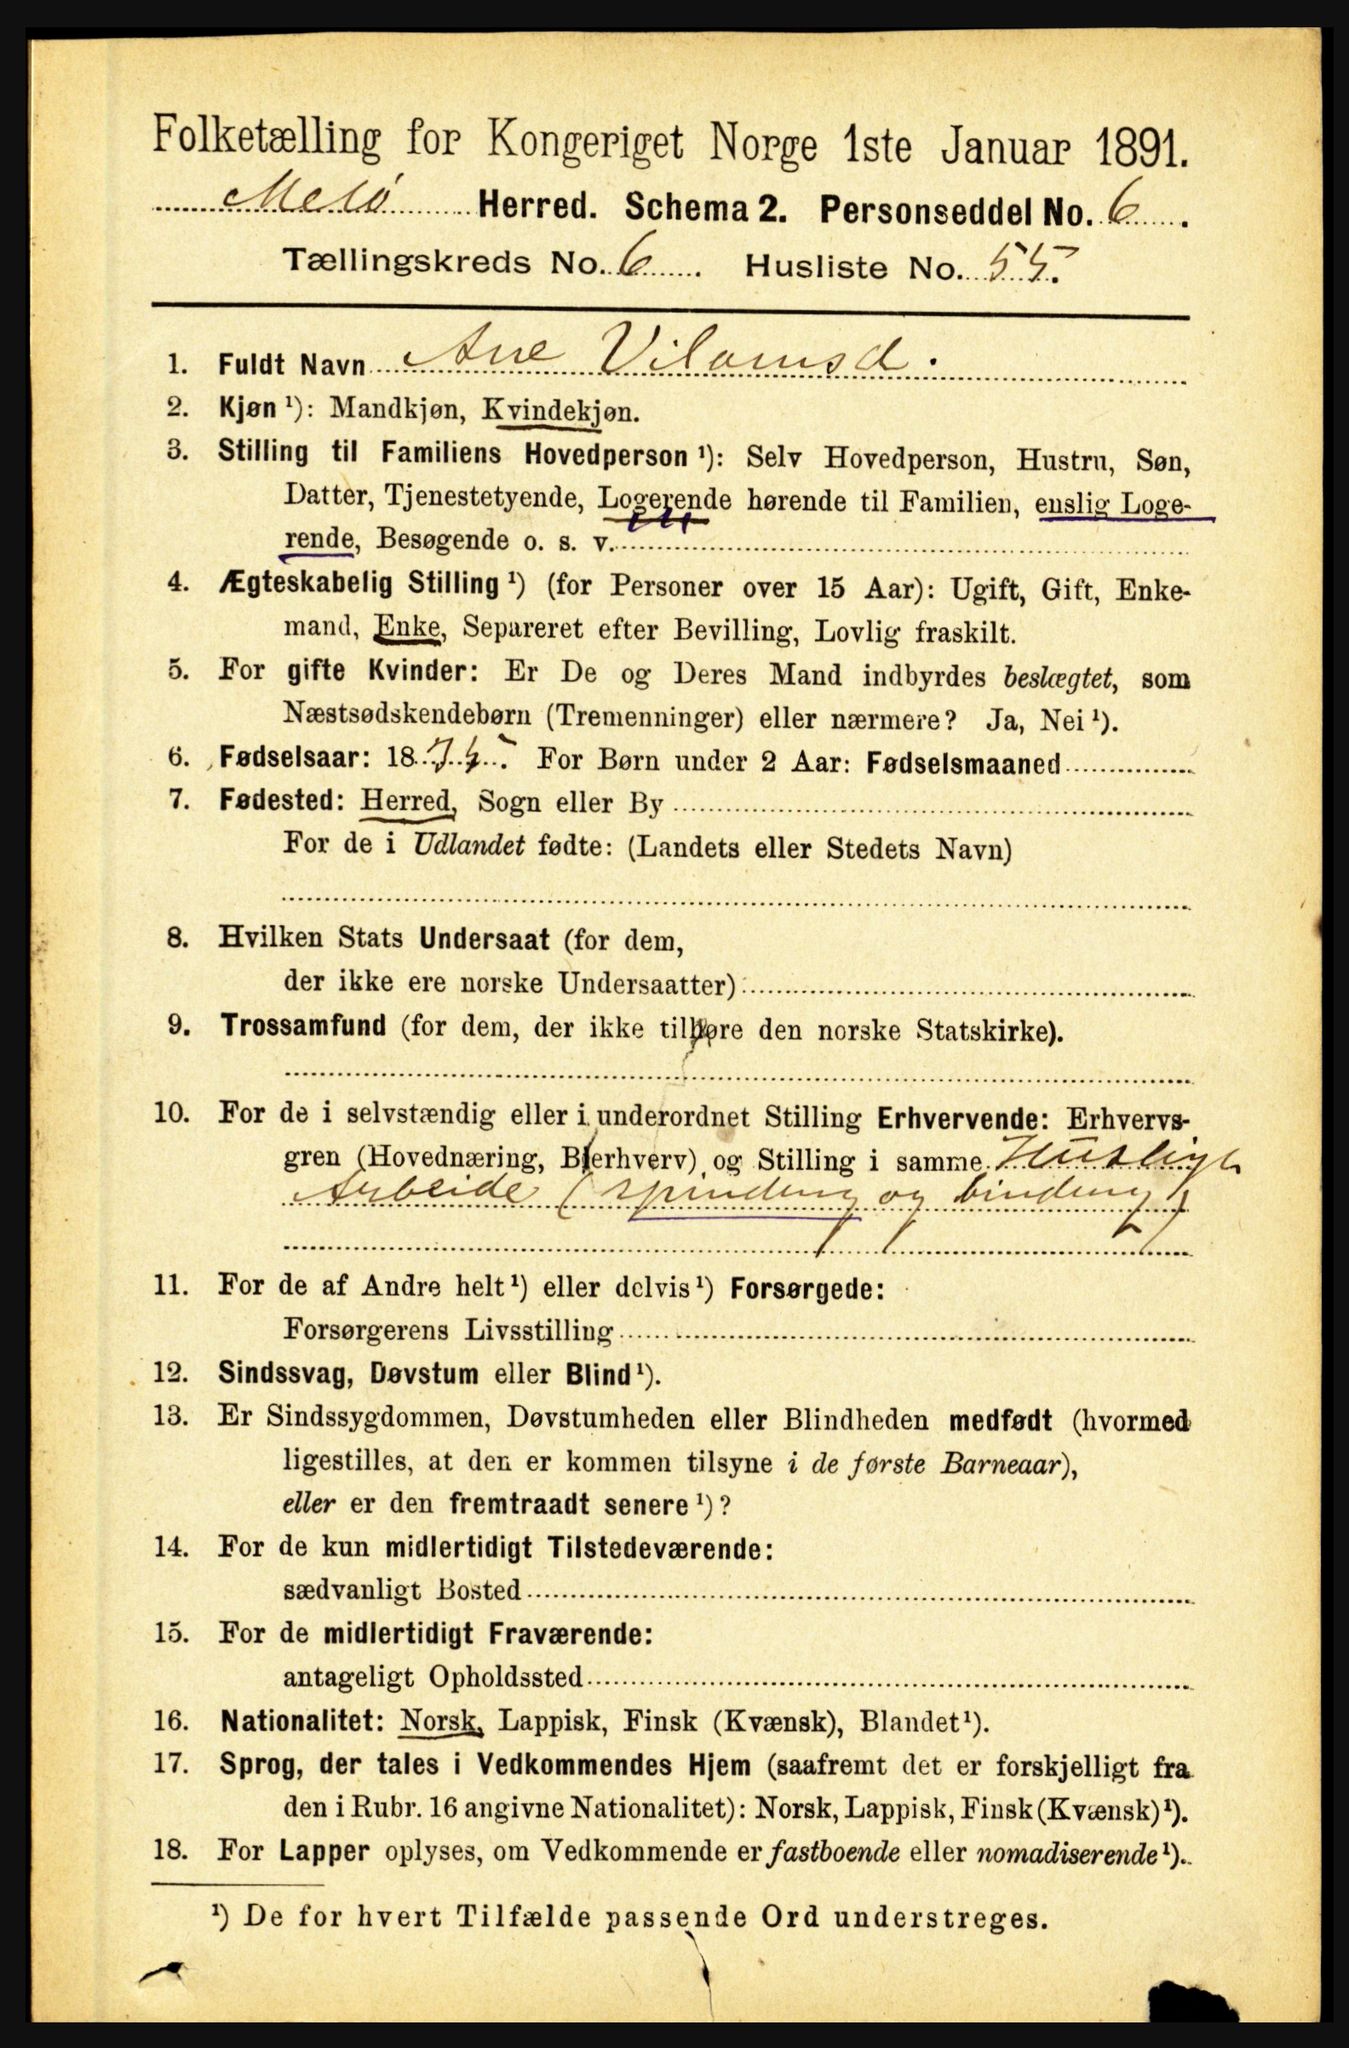 Folketælling for Kongeriget Norge 1ste Januar 1891.
Melø Herred. Schema 2. Personseddel No. 6.
Tællingskreds No. 6. Husliste No. 55.
1. Fuldt Navn Ane Vilomsd.
2. Kjøn ¹): Mandkjøn, Kvindekjøn.
3. Stilling til Familiens Hovedperson ¹): Selv Hovedperson, Hustru, Søn,
Datter, Tjenestetyende, Logerende hørende til Familien, enslig Loge-
rende, Besøgende o. s. v.
4. Ægteskabelig Stilling ¹) (for Personer over 15 Aar): Ugift, Gift, Enke-
mand, Enke, Separeret efter Bevilling, Lovlig fraskilt.
5. For gifte Kvinder: Er De og Deres Mand indbyrdes beslægtet, som
Næstsødskendebørn (Tremenninger) eller nærmere? Ja, Nei ¹).
6. Fødselsaar: 18 For Børn under 2 Aar: Fødselsmaaned
7. Fødested: Herred, Sogn eller By
For de i Udlandet fødte: (Landets eller Stedets Navn)
8. Hvilken Stats Undersaat (for dem,
der ikke ere norske Undersaatter)
9. Trossamfund (for dem, der ikke tilhøre den norske Statskirke).
10. For de i selvstændig eller i underordnet Stilling Erhvervende: Erhvervs-
gren (Hovednæring, Bierhverv) og Stilling i samme Huslige
Arbeide (spinding og binding)
11. For de af Andre helt ¹) eller delvis ¹) Forsørgede:
Forsørgerens Livsstilling
12. Sindssvag, Døvstum eller Blind ¹).
13. Er Sindssygdommen, Døvstumheden eller Blindheden medfødt (hvormed
ligestilles, at den er kommen tilsyne i de første Barneaar),
eller er den fremtraadt senere ¹)?
14. For de kun midlertidigt Tilstedeværende:
sædvanligt Bosted
15. For de midlertidigt Fraværende:
antageligt Opholdssted
16. Nationalitet: Norsk, Lappisk, Finsk (Kvænsk), Blandet ¹).
17. Sprog, der tales i Vedkommendes Hjem (saafremt det er forskjelligt fra
den i Rubr. 16 angivne Nationalitet): Norsk, Lappisk, Finsk (Kvænsk) ¹).
18. For Lapper oplyses, om Vedkommende er fastboende eller nomadiserende ¹).
¹) De for hvert Tilfælde passende Ord understreges.